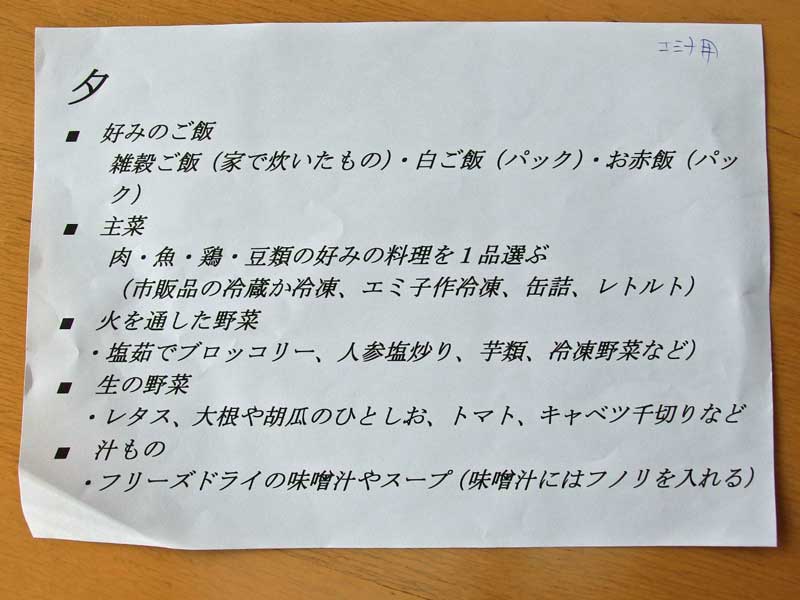 エミ子用
夕
■ 好みのご飯
雑穀ご飯（家で炊いたもの）・白ご飯（パック）・お赤飯（パッ
ク）
■ 主菜
肉・魚・鶏・豆類の好みの料理を１品選ぶ
（市販品の冷蔵か冷凍、エミ子作冷凍、缶詰、レトルト）
■ 火を通した野菜
・塩茹でブロッコリー、人参塩炒り、芋類、冷凍野菜など）
■ 生の野菜
・レタス、大根や胡瓜のひとしお、トマト、キャベツ千切りなど
■ 汁もの
・フリーズドライの味噌汁やスープ（味噌汁にはフノリを入れる）